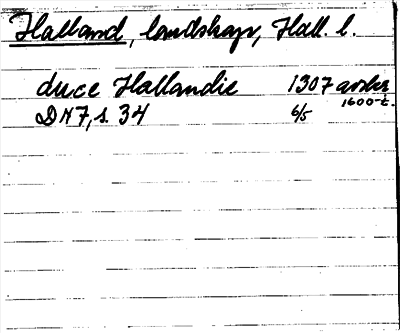 Halland, landskap, Hall. l.
duce Hallandie 1307 avskr
1600-t.
DN 7, s. 34 6/5